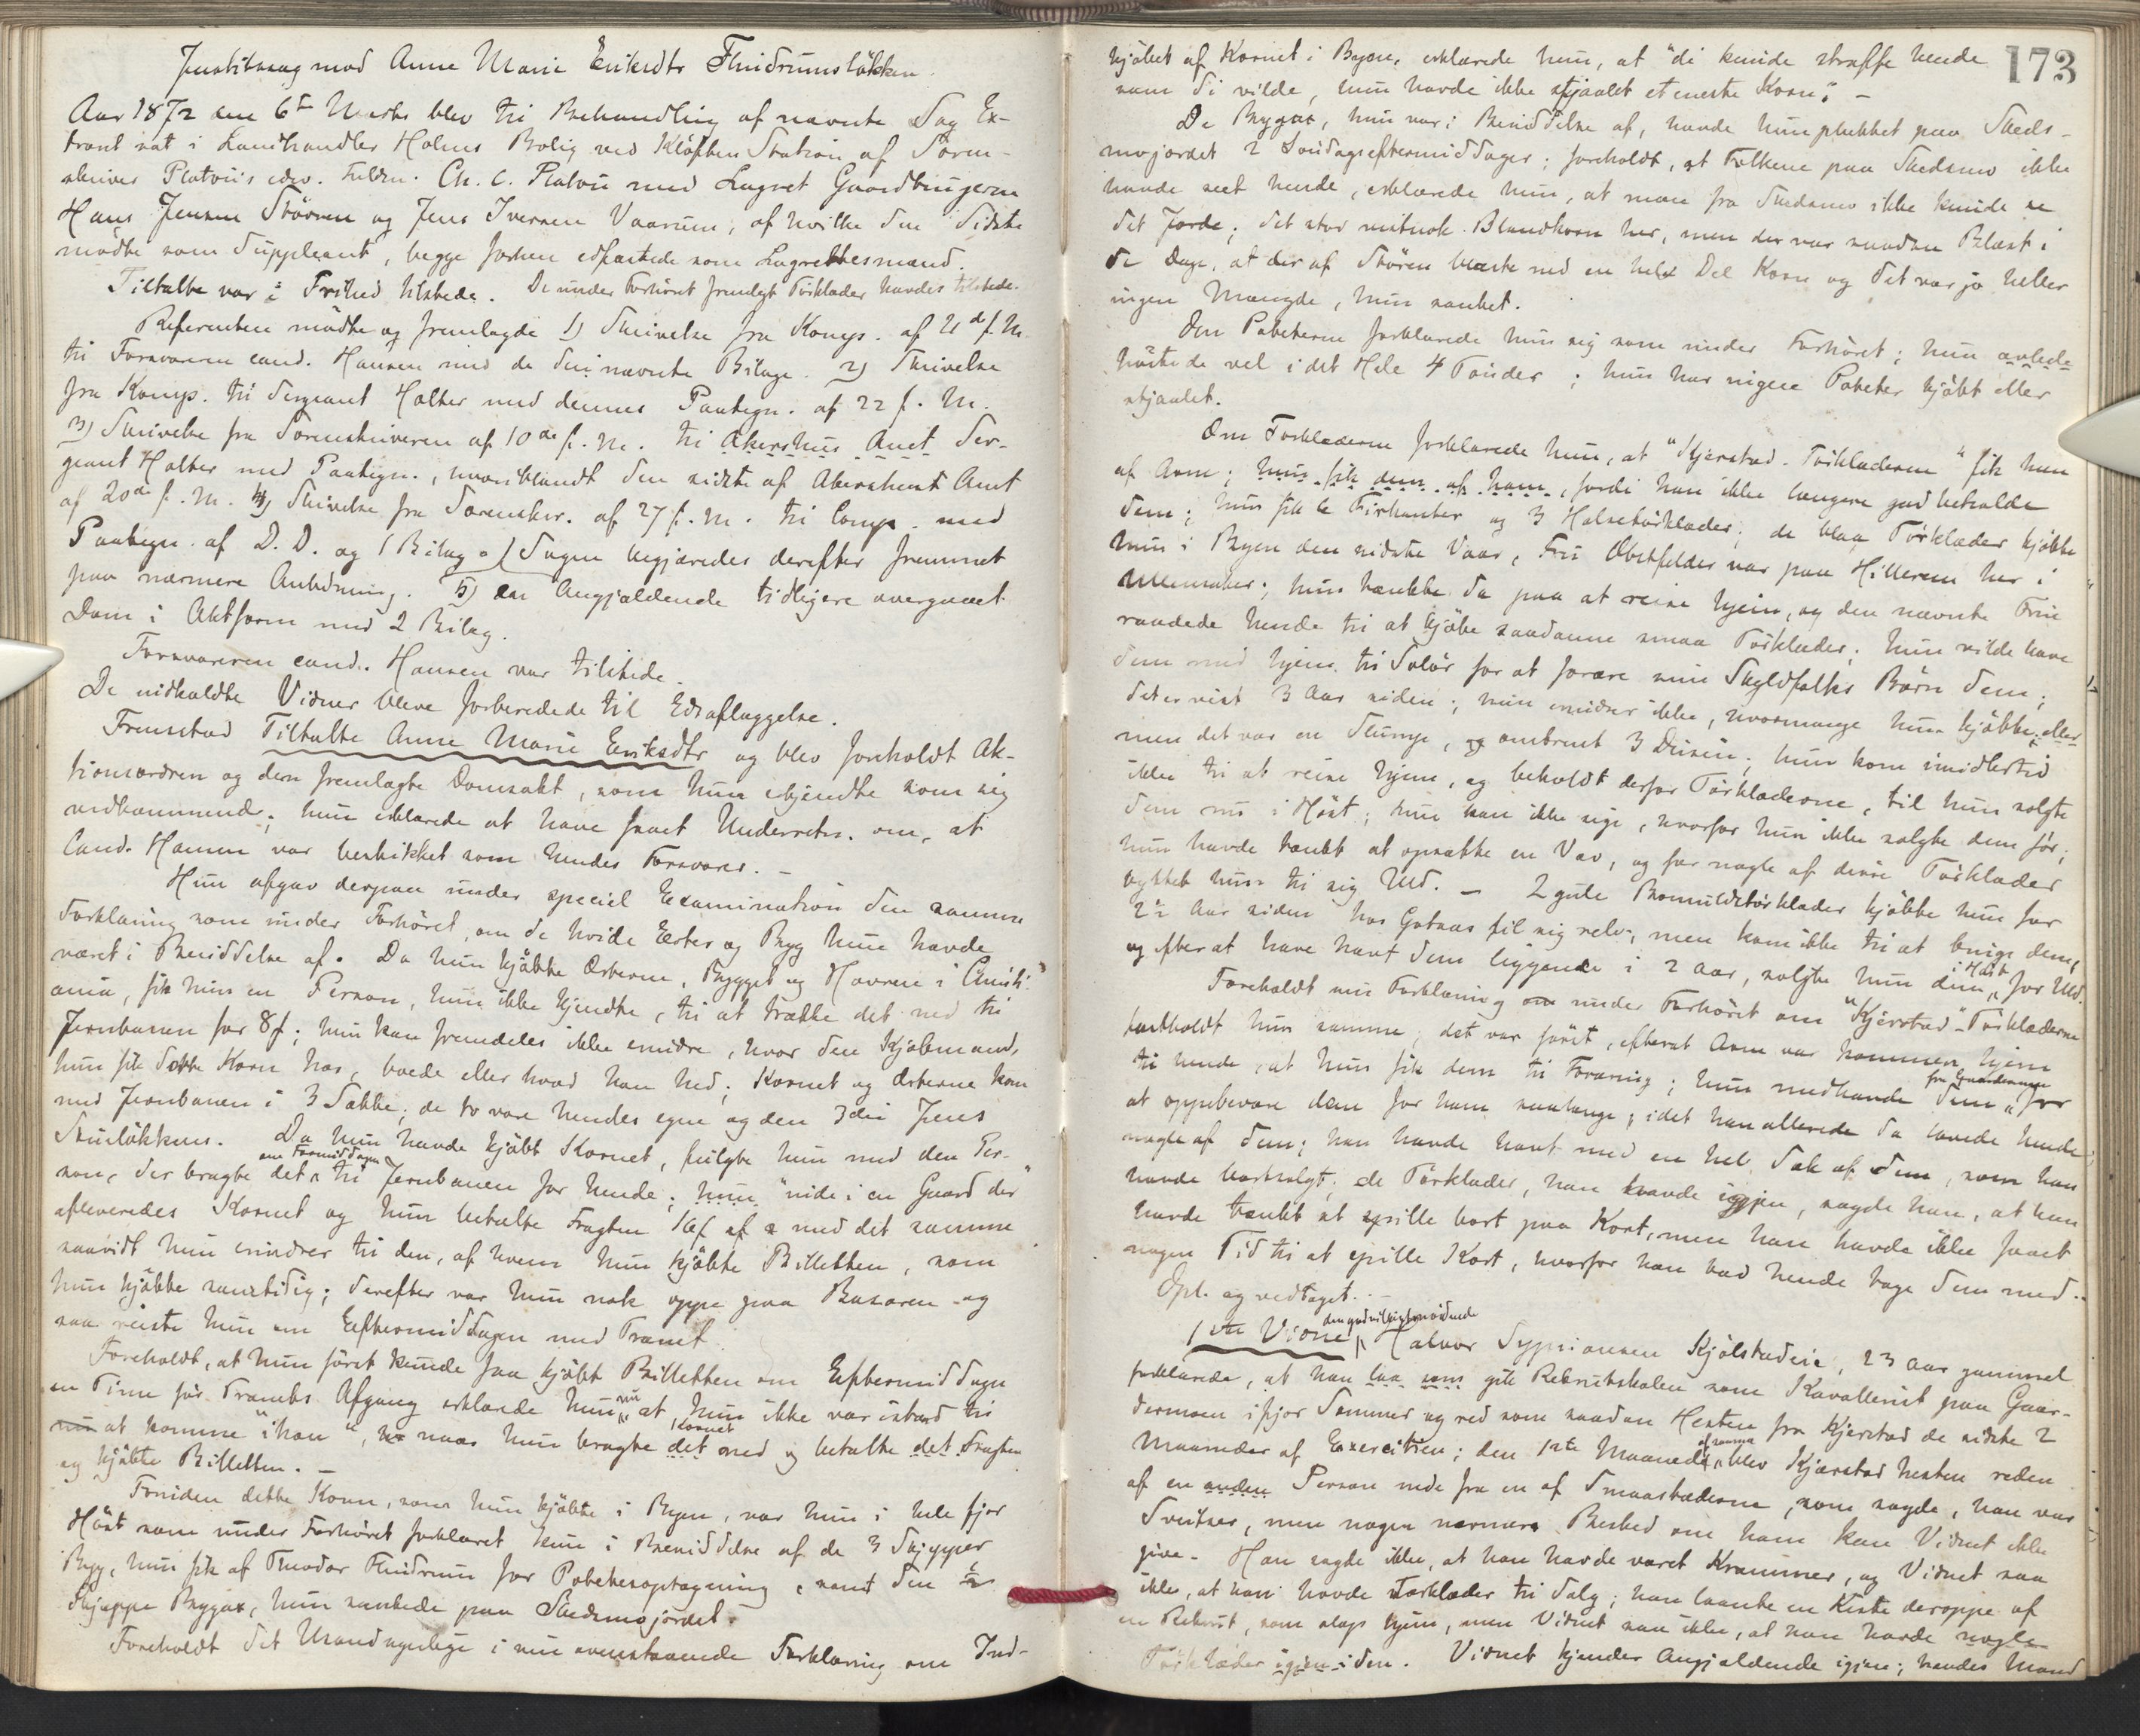 Justitssag mod Anne Marie Eriksdtr Flindrumsløkken.
Aar 1872 den 6te Marts blev til Behandling af nævnte Sag Ex-
traret sat i Landhandler Holms Bolig ved Kløften Station af Soren-
skriver Platous edsv. Fuldm. Ch. C. Platou med Lagret Gaardbrugerne
Hans Jensen Støvren og Jens Iversen Vaarum, af hvilke den Sidste
mødte som Suppleant, begge forhen edfæstede som Lagrettesmænd.
Tiltalte var i Frihed tilstede. De under Forhøret fremlagte Tørklæder havdes tilstede.
Referenten mødte og fremlagde 1) Skrivelse fra Komps. af 21de f. M.
til Forsvareren cand. Hansen med de deri nævnte Bilage. 2) Skrivelse
fra Komps. til Sergeant Holter med dennes Paategn. af 22 f. M.
3) Skrivelse fra Sorenskriveren af 10de f. M. til Akershus Amt Ser-
geant Holter med Paategn., hvoriblandt den sidste af Akershus Amt
af 20de f. M. 4) Skrivelse fra Sorenskr. af 27 f. M. til Comps. med
Paategn. af D. D. og 1 Bilag a) Sagen begjæredes derefter fremmet
paa nærmere Anledning. 5) en Angjældende tidligere overgaaet
Dom i Aktform med 2 Bilag.
Forsvareren cand. Hansen var tilstede.
De indkaldte Vidner bleve forberedede til Edsaflæggelse.
Fremstod Tiltalte Anne Marie Eriksdtr og blev foreholdt Ak-
tionsordren og den fremlagte Domsakt, som hun erkjendte som sig
vedkommende; hun erklærede at have faaet Underretn. om, at
Cand. Hansen var beskikket som hendes Forsvarer. —
Hun afgav derpaa under speciel Examination den samme
Forklaring som under Forhøret, om de hvide Erter og Byg hun havde
været i Besiddelse af. Da hun kjøbte Erterne, Bygget og Havren i Christi-
ania, fik hun en Person, hun ikke kjendte, til at trække det ned til
Jernbanen for 8 f; hun kan fremdeles ikke erindre, hvor den Kjøbmand,
hun fik dette Korn hos, boede eller hvad han hed; Kornet og Erterne kom
med Jernbanen i 3 Sække; de to vare hendes egne og den 3die Jens
Skurløkkens. Da hun havde kjøbt Kornet, fulgte hun med den Per-
om Formiddagen
son, der bragte det til Jernbanen for hende; hun "nide i en Gaard der"
afleveredes Kornet og hun betalte Fragten 16 f af a med det samme
saavidt hun erindrer til den, af hvem hun kjøbte Billetten, som
hun kjøbte samtidig; derefter var hun nok oppe paa Basaren og
saa reiste hun om Eftermiddagen med Trænet.
Foreholdt, at hun først kunde faa kjøbt Billetten om Eftermiddagen
en Time før Trænets Afgang erklærede hun nu at hun ikke var istand til
nu at komme "ihau", hv naar hun bragte det Kornet ned og betalte det Fragten
og kjøbte Billetten. —
Foruden dette Korn, som hun kjøbte i Byen, var hun i hele fjor
Høst som under Forhøret forklaret kun i Besiddelse af de 3 Skjepper
Byg, hun fik af Theodor Flindrum for Potetesoptagning, samt den ½
Skjeppe Bygax, hun sankede paa Skedsmojordet.
Foreholdt det Usandsynlige i sin ovenstaaende Forklaring om Ind-
173
kjøbet af Kornet i Byen, erklærede hun, at "de kunde straffe hende
som de vilde, hun havde ikke stjaalet et eneste Korn". —
De Bygax, hun var i Besiddelse af, havde hun plukket paa Skeds-
mojordet 2 Søndagseftermiddage; foreholdt, at Folkene paa Skedsmo ikke
havde seet hende, erklærede hun, at man fra Skedsmo ikke kunde se
det Jorde; det stod vistnok Blandkorn her, men der var saadan Blæst i
de Dage, at der af Støren blæste ned en hel Del Korn og det var jo heller
ingen Mængde, hun sanket.
Om Poteterne forklarede hun sig som under Forhøret; hun avlede
høstede vel i det Hele 4 Tønder; hun har ingen Poteter kjøbt eller
stjaalet.
Om Tørklæderne forklarede hun, at "Kjerstad-Tørklæderne" fik hun
af Arne; hun fik dem af ham, fordi han ikke længere gad beholde
dem; hun fik 6 Firkanter og 3 Halstørklæder; de blaa Tørklæder kjøbte
hun i Byen den sidste Vaar, Fru Obstfelder var paa Hilleren her i
Ullensaker; hun tænkte da paa at reise hjem, og den nævnte Frue
raadede hende til at kjøbe saadanne smaa Tørklæder; hun vilde have
dem med hjem til Solør for at forære sine Skyldfolks Børn dem;
det er vist 3 Aar siden; hun erindrer ikke, hvormange hun kjøbte, eller
men det var en Slump, og omtrent 3 Dusin; hun kom imidlertid
ikke til at reise hjem, og beholdt derfor Tørklæderne, til hun solgte
dem nu i Høst; hun kan ikke sige, hvorfor hun ikke solgte dem før;
hun havde tænkt at opsætte en Væv, og for nogle af disse Tørklæder
byttet hun til sig Uld. — 2 gule Bomuldstørklæder kjøbte hun for
2½ Aar siden hos Gotaas til sig selv, men kom ikke til at bruge dem,
og efter at have havt dem liggende i 2 Aar, solgte hun dem i Høst for Uld.
Foreholdt sin Forklaring om under Forhøret om "Kjerstad"-Tørklæderne
fastholdt hun samme; det var først, efterat Arne var kommen hjem
til hende, at hun fik dem til Foræring; hun medhavde dem fra Gaardermoen for
at opbevare dem for ham saalænge, idet han allerede da lovede hende
nogle af dem; han havde havt med en hel Sæk af dem, som han
havde bortsolgt; de Tørklæder, han havde igjen, sagde han, at han
havde tænkt at spille bort paa Kort, men han havde ikke faaet
nogen Tid til at spille Kort, hvorfor han bad hende tage dem med.
Opl. og vedtaget. —
1ste Vidne, den godvilligtmødende Halvor Syprionsen Kjølstadeie, 23 Aar gammel
forklarede, at han laa som gik Rekrutskolen som Kavallerist paa Gaar-
dermoen ifjor Sommer og red som saadan Hesten fra Kjerstad de sidste 2
Maaneder af Exercitsen; den 1ste Maaned af samme blev Kjærstad hesten reden
af en anden Person nede fra en af Smaastæderne, som sagde, han var
Sveitser, men nogen nærmere Besked om ham kan Vidnet ikke
give. Han sagde ikke, at han havde været Kræmmer, og Vidnet saa
ikke, at han havde Tørklæder til Salg; han laante en Kiste deroppe af
en Rekrut, som slap hjem, men Vidnet saa ikke, at han havde nogle
Tørklæder igjen i den. Vidnet kjender Angjældende igjen; hendes Mand